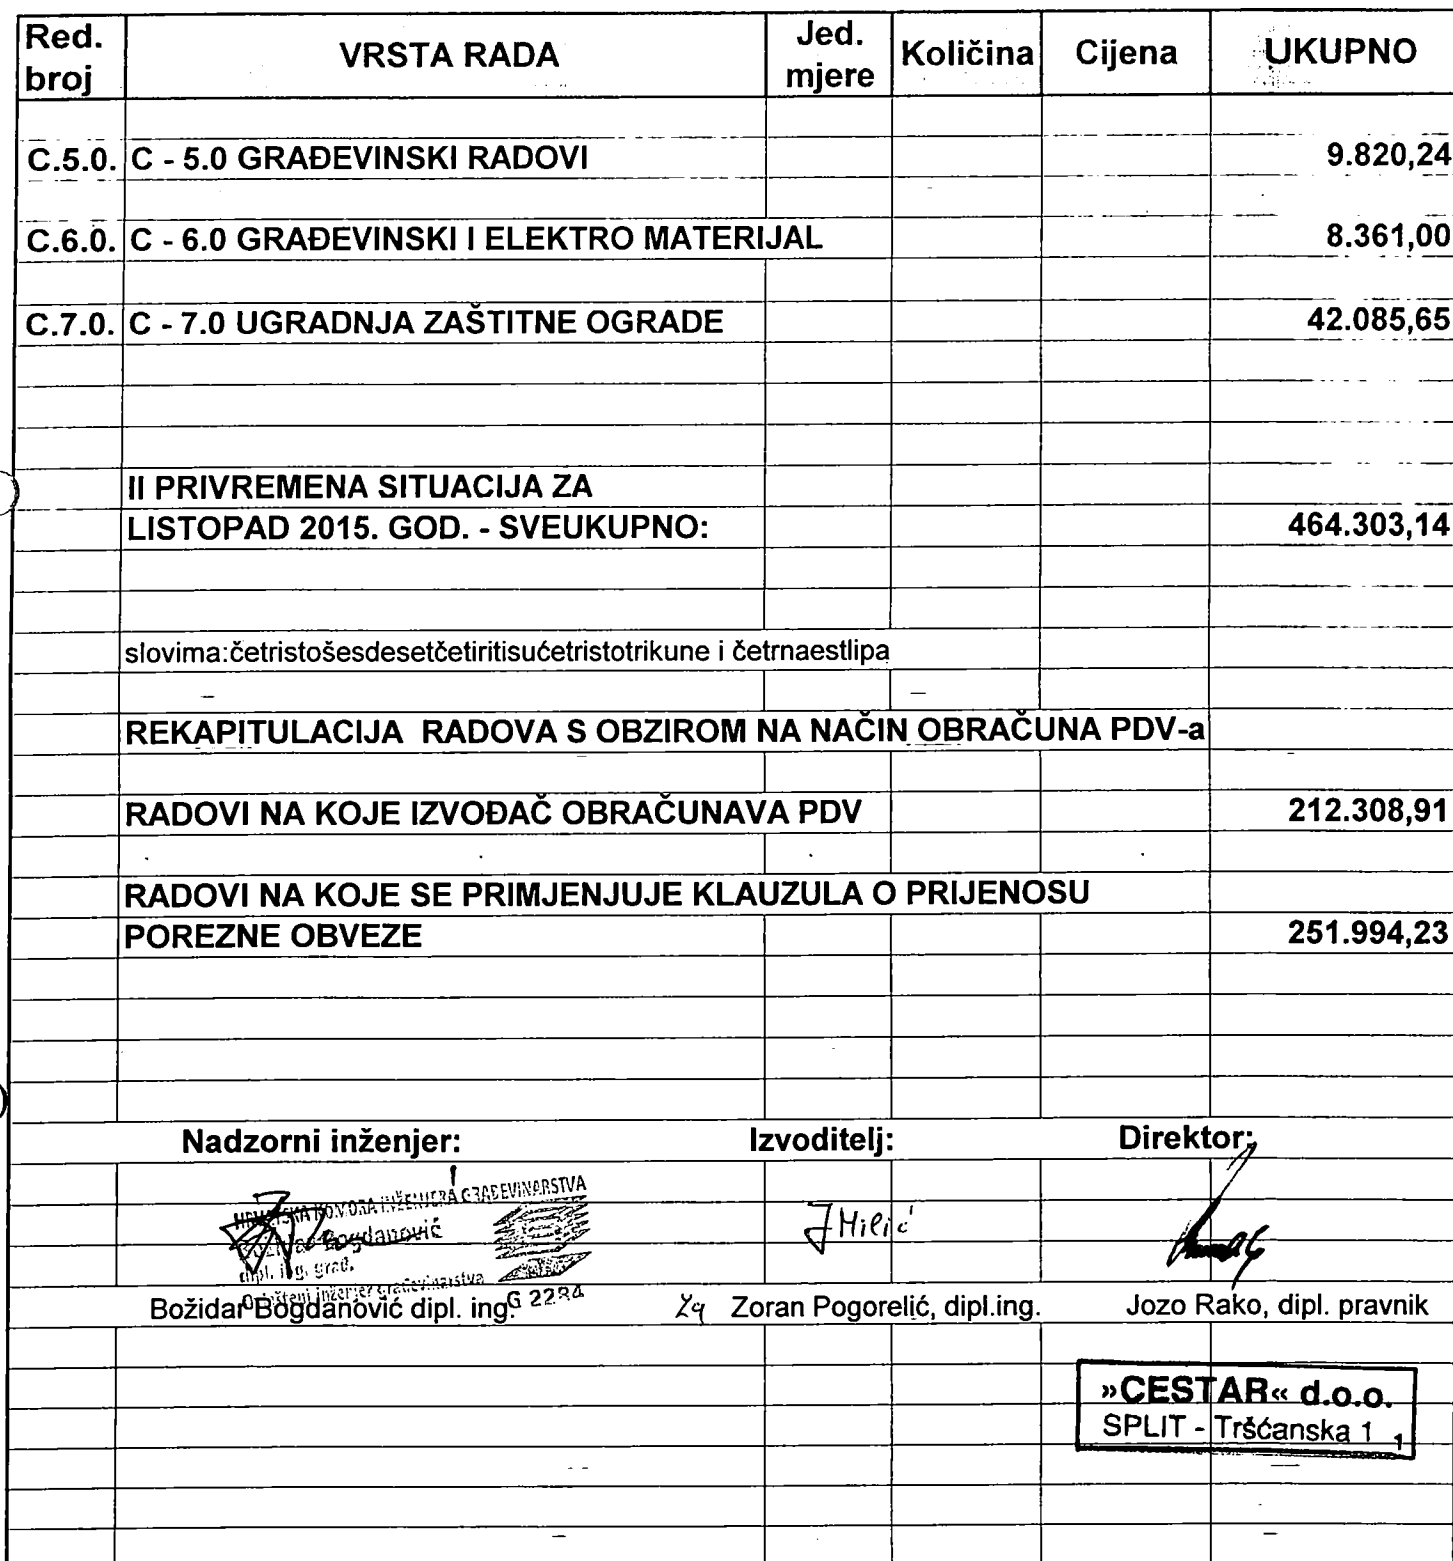 Red. broj VRSTA RADA Jed. mjere Količina Cijena UKUPNO
C.5.0. C - 5.0 GRAĐEVINSKI RADOVI 9.820,24
C.6.0. C - 6.0 GRAĐEVINSKI I ELEKTRO MATERIJAL 8.361,00
C.7.0. C - 7.0 UGRADNJA ZAŠTITNE OGRADE 42.085,65
II PRIVREMENA SITUACIJA ZA
LISTOPAD 2015. GOD. - SVEUKUPNO: 464.303,14
slovima:četristošesdesetčetiritisućetristotrikune i četrnaestlipa
REKAPITULACIJA RADOVA S OBZIROM NA NAČIN OBRAČUNA PDV-a
RADOVI NA KOJE IZVOĐAČ OBRAČUNAVA PDV 212.308,91
RADOVI NA KOJE SE PRIMJENJUJE KLAUZULA O PRIJENOSU
POREZNE OBVEZE 251.994,23
Nadzorni inženjer: Izvoditelj: Direktor:
HRVATSKA KOMORA INŽENJERA GRAĐEVINARSTVA
Božidar Bogdanović
dipl. ing. grad.
Ovlašteni inženjer građevinarstva
G 2284
J Milić
Božidar Bogdanović dipl. ing. Za Zoran Pogorelić, dipl.ing. Jozo Rako, dipl. pravnik
»CESTAR« d.o.o.
SPLIT - Tršćanska 1 1